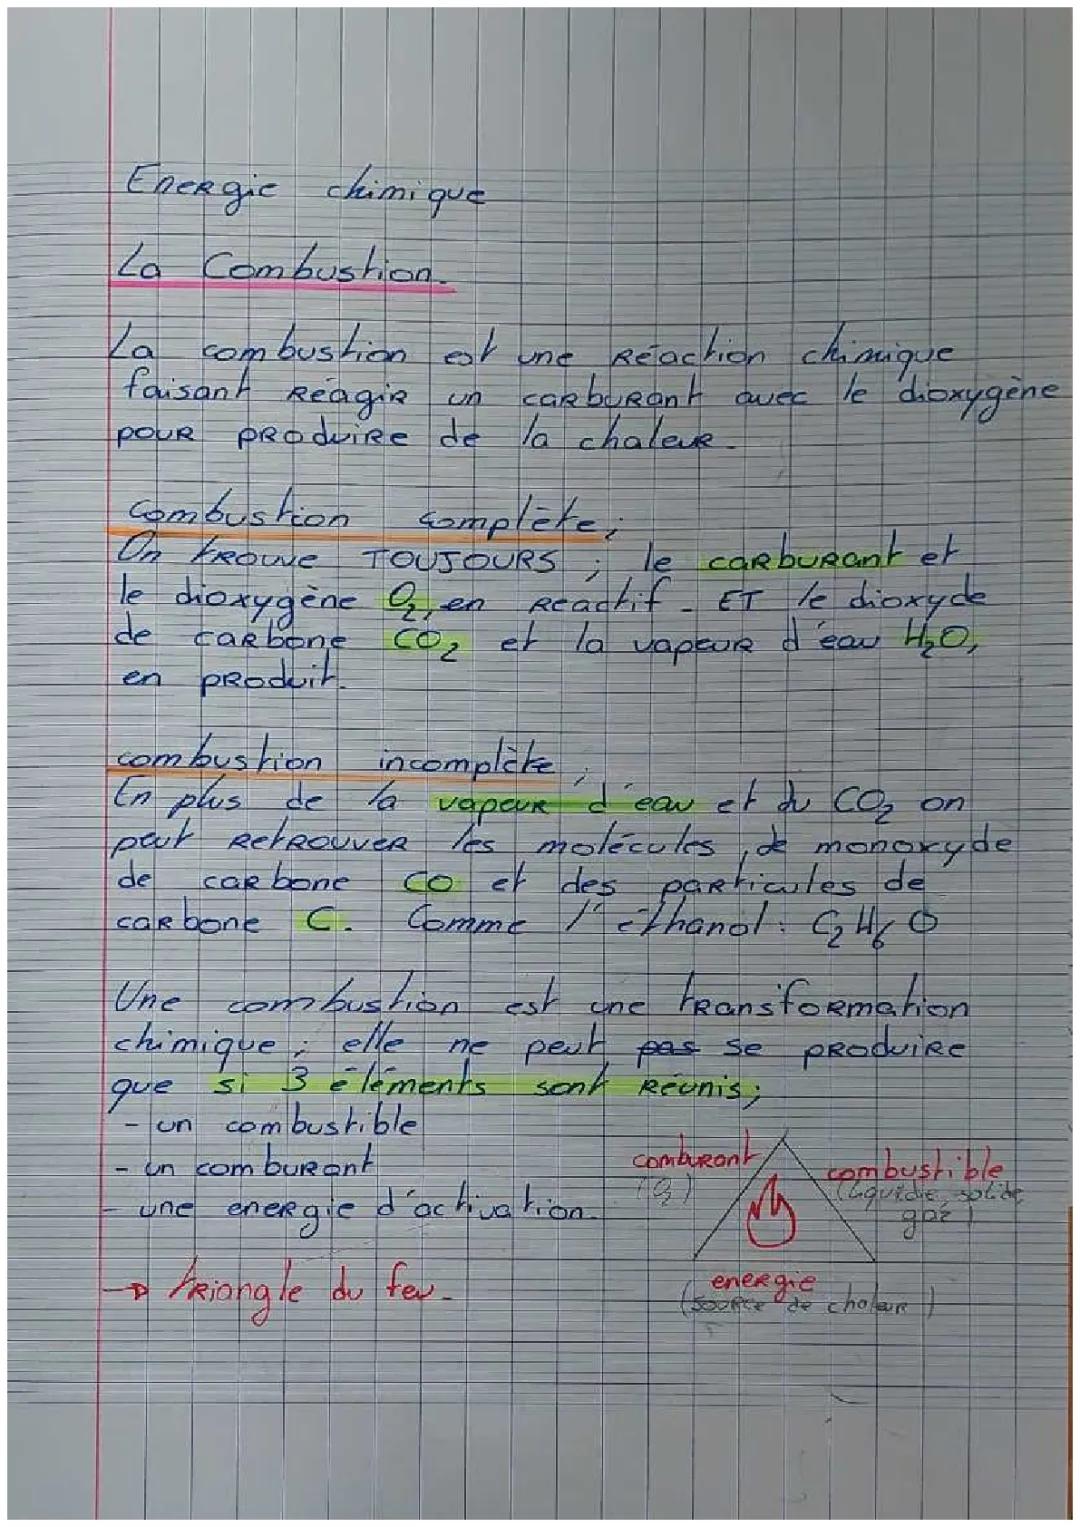 Energie chimique
La Combustion.
La combustion est une Réaction chimique
faisant Réagir un carburant avec le dioxygène
pour produire de la chaleur.
Combustion complète;
On trouve TOUJOURS ; le carburant et
le dioxygène O₂, en Réactif. ET le dioxyde
de carbone CO₂ et la vapeur d'eau H₂O,
en produit.
combustion incomplète ;
En plus de la vapeur d'eau et du CO₂ on
peut Retrouver les molécules de monoxyde
de carbone CO et des particules de
carbone C. Comme l'éthanol : C₂H₆O
Une combustion est une transformation
chimique ; elle ne peut pas se produire
que si 3 éléments sont Réunis ;
- un combustible
- un comburant
- une energie d'activation.
→ triangle du feu.
comburant
(O₂)
combustible
(liquidie, solide
gaz)
energie
(source de chaleur)